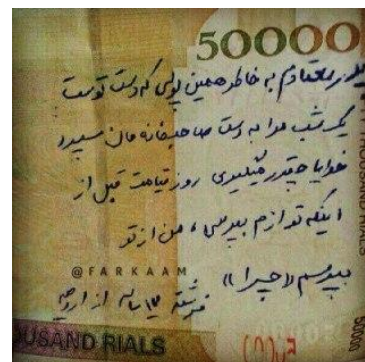 50000
پدر معتادم به خاطر همین پولی که دست توست
یک شب مرا به دست صاحبخانه مان سپرد
خدایا چقدر میگیری روز قیامت قبل از
اینکه تو ازم بپرسی، من از تو
بپرسم «چرا»
@FARKAAM
فرشته ۱۲ ساله از ارومیه
OUSAND RIALS
THOUSAND RIALS
50000